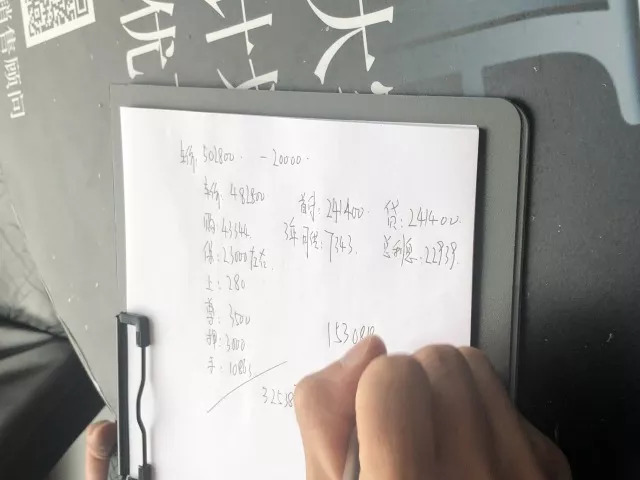 销售顾问
优
车价: 502800. -20000.
车价: 482800
购: 43344
保: 23000左右.
上: 280
尊: 3500
押: 3000
手: 1086
首付: 241400.
3年月供: 7343.
贷: 241400.
总利息: 22939.
32538
1530